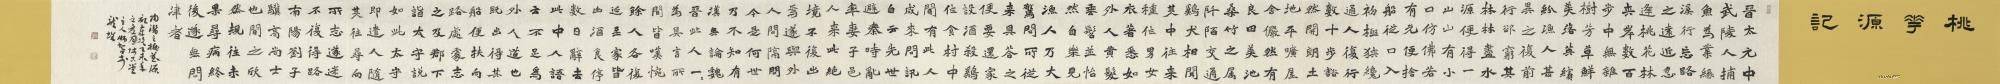 桃華源記
晉太元中
武陵人捕
魚為業緣
溪行忘路
之遠近忽
逢桃花林
夾岸數百
步中無雜
樹芳草鮮
美落英繽
紛漁人甚
異之復前
行欲窮其
林林盡水
源便得一
山山有小
口仿佛若
有光便捨
船從口入
初極狹纔
通人復行
數十步豁
然開朗土
地平曠屋
舍儼然有
良田美池
桑竹之屬
阡陌交通
雞犬相聞
其中往來
種作男女
衣著悉如
外人黃髮
垂髫並怡
然自樂見
漁人乃大
驚問所從
來具答之
便要還家
設酒殺雞
作食村中
聞有此人
咸來問訊
自云先世
避秦時亂
率妻子邑
人來此絕
境不復出
焉遂與外
人間隔問
今是何世
乃不知有
漢無論魏
晉此人一一
為具言所
聞皆嘆惋
餘人各復
延至其家皆
出酒食停
數日辭去
此中人語
云不足為
外人道也
既出得其
船便扶向
路處處志
之及郡下
詣太守說
如此太守
即遣人隨
其往尋向
所志遂迷
不復得路
南陽劉子
驥高尚士
也聞之欣
然規往未
果尋病終
後遂無問
津者